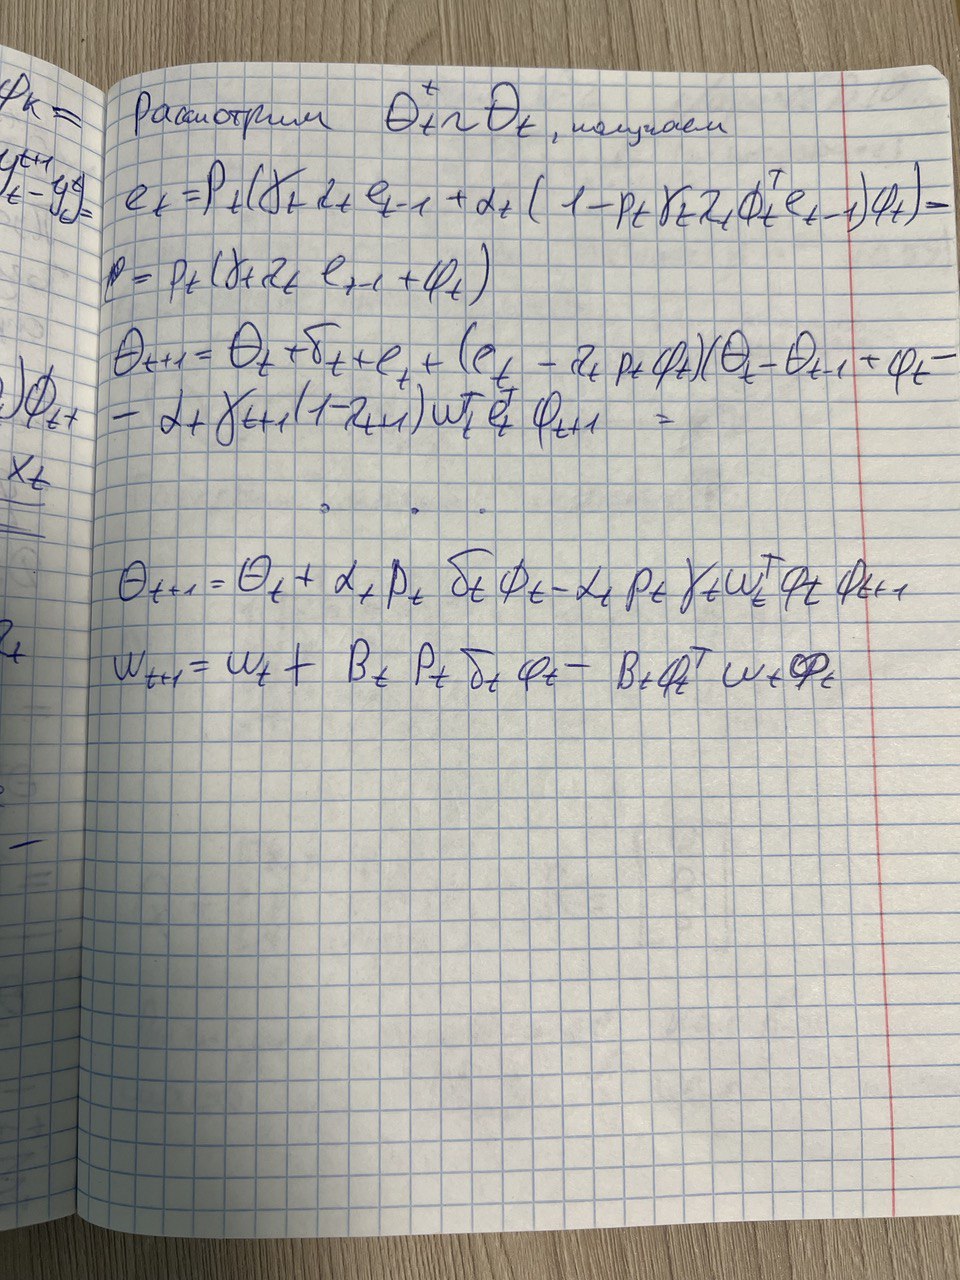 φ_k =
Рассмотрим θ_t^t ~ θ_t, получаем
e_t = P_t(γ_t λ_t e_{t-1} + α_t (1 - ρ_t γ_t λ_t φ_t^T e_{t-1}) φ_t) =
= ρ_t (γ_t λ_t e_{t-1} + φ_t)
θ_{t+1} = θ_t + δ_t + e_t + (e_t - λ_t ρ_t φ_t)(θ_t - θ_{t-1} + φ_t -
)φ_{t+
- α_t γ_{t+1} (1 - λ_{t+1}) w_t^T e_t^T φ_{t+1} =
x_t
. . .
θ_{t+1} = θ_t + α_t ρ_t δ_t φ_t - α_t ρ_t γ_t w_t^T φ_t φ_{t+1}
w_{t+1} = w_t + B_t P_t δ_t φ_t - B_t φ_t^T w_t φ_t